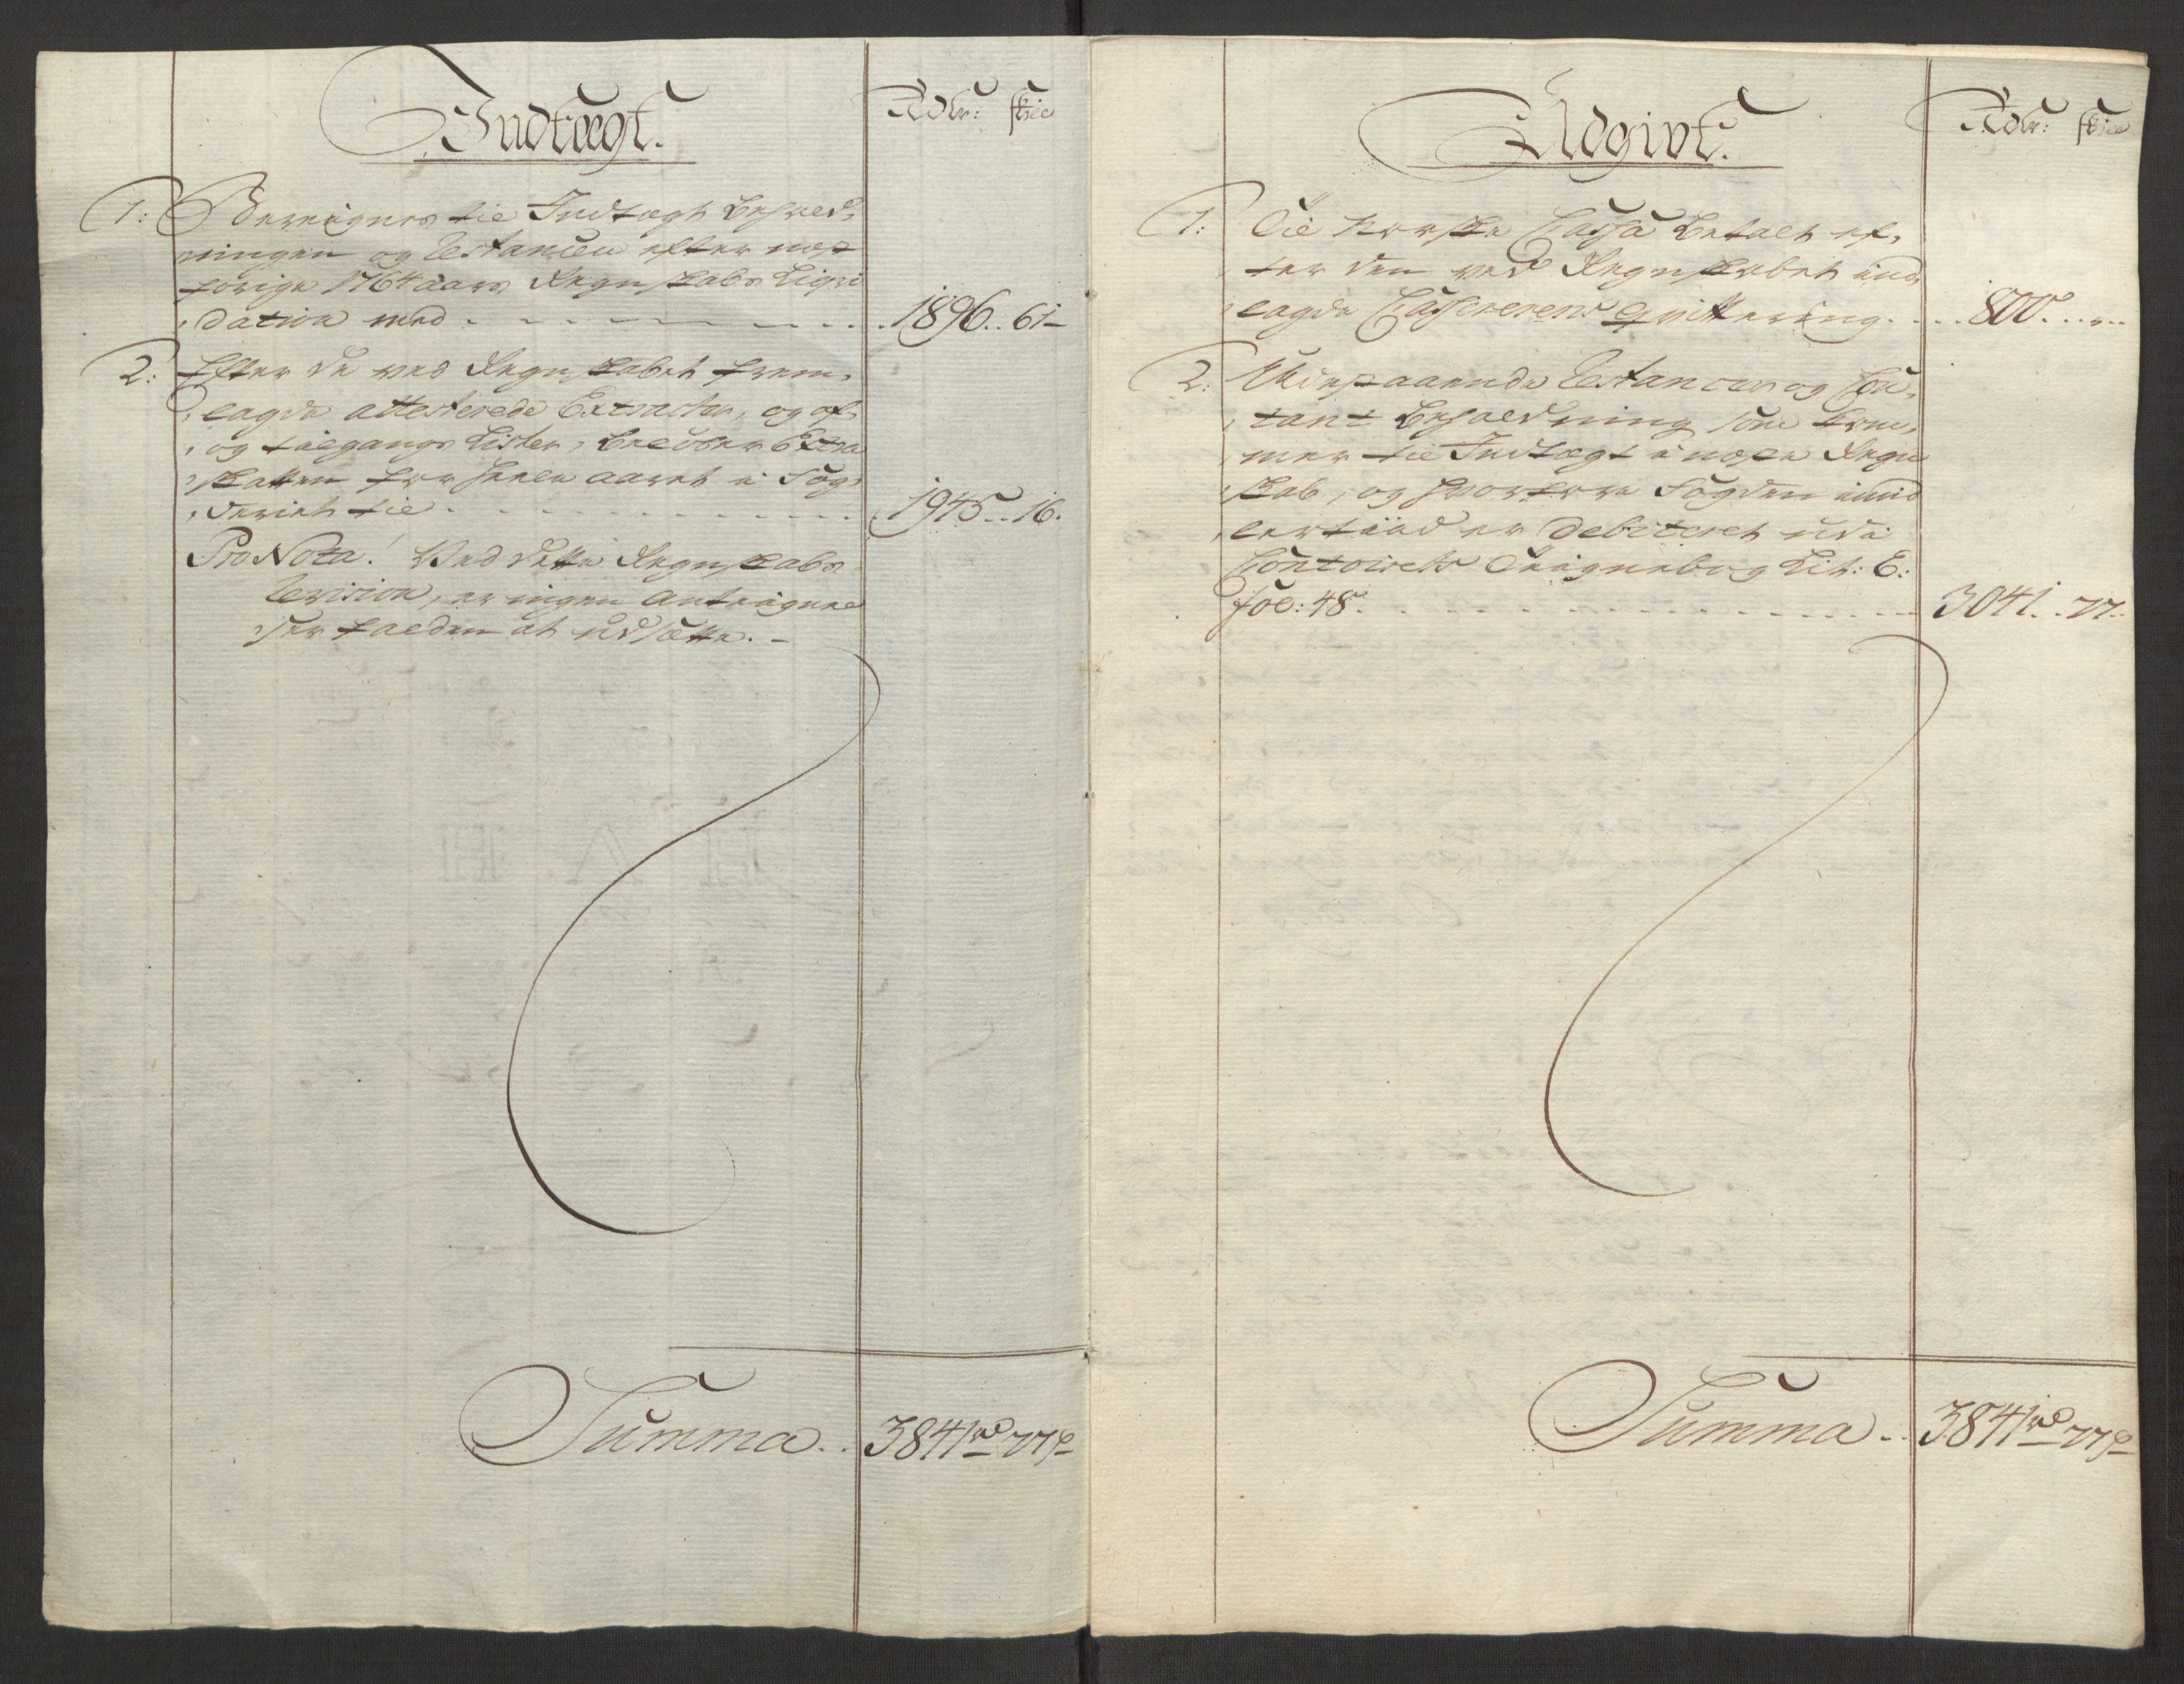 Indtægt.
Rdlr: skil
1: Bereignes til Indtægt Behold,
ningen og Restancen efter næst
forige 1764 aars Regnskabs Liqvi
dation med
1896. 61
2: Efter de ved Regnskabet frem,
lagde attesterede Extracter, og af,
og tilgangs Lister, beløber Extra
skatten for heele aaret i Fog,
deriet til
1945. 16.
Pro Nota! Ved dette Regnskabs
Revision, er ingen Anteignel
ser falden at udsætte.
Summa.. 3841 rd 77 s
Udgivt.
Rdlr: skil
1: Til Norske Cassa Betalt ef,
ter den ved Regnskabet ind,
lagde Cassererens Qvittering.
800. "
2: Udestaaende Restancer og Con,
tant Beholdning som kom,
mer til Indtægt i næste Regn
skab, og hvorfore Fogden imid
lertiid er debiteret udi
Contoirets Teignebog Lit: E:
Fol: 48.
3041. 77.
Summa.. 3841 rd 77 s